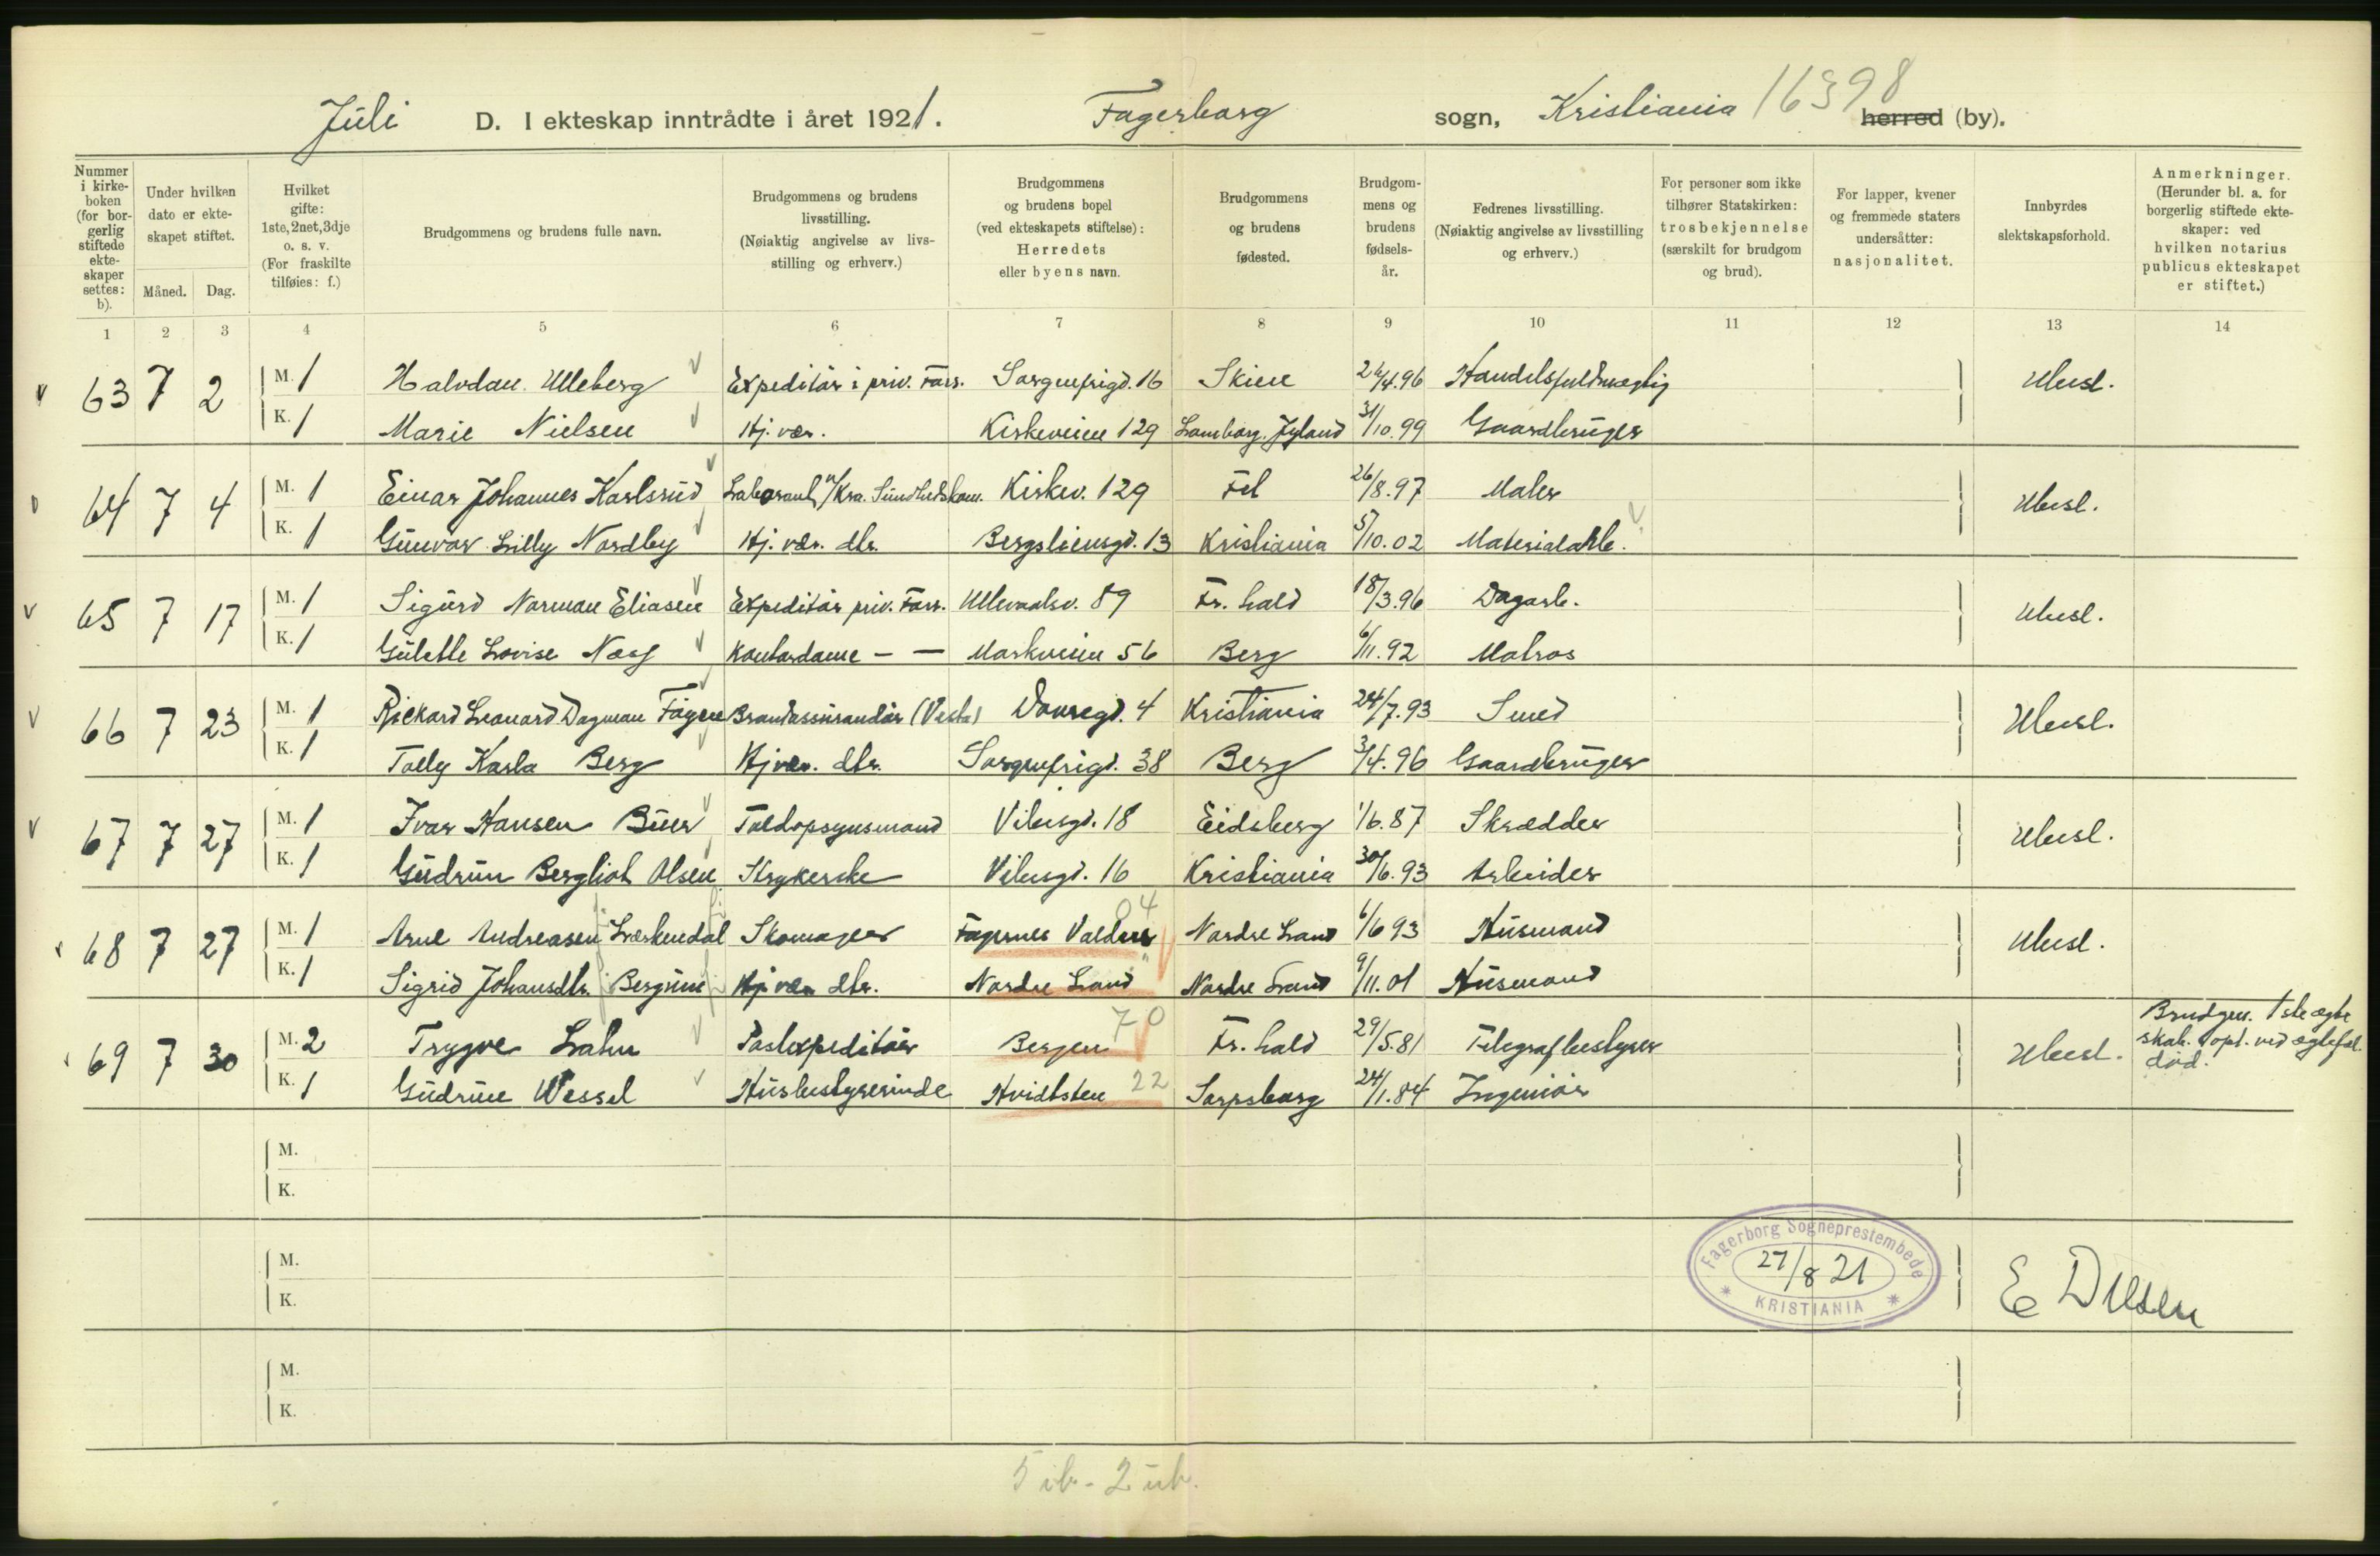 Juli D. I ekteskap inntrådte i året 1921. Fagerborg sogn, Kristiania 16398 herred (by).
Nummer i kirkeboken (for borgerlig stiftede ekteskaper settes: b).
Under hvilken dato er ekteskapet stiftet.
Måned. Dag.
Hvilket gifte: 1ste, 2net, 3dje o. s. v. (For fraskilte tilføies: f.)
Brudgommens og brudens fulle navn.
Brudgommens og brudens livsstilling. (Nøiaktig angivelse av livsstilling og erhverv.)
Brudgommens og brudens bopel (ved ekteskapets stiftelse): Herredets eller byens navn.
Brudgommens og brudens fødested.
Brudgommens og brudens fødselsår.
Fedrenes livsstilling. (Nøiaktig angivelse av livsstilling og erhverv.)
For personer som ikke tilhører Statskirken: trosbekjennelse (særskilt for brudgom og brud).
For lapper, kvener og fremmede staters undersåtter: nasjonalitet.
Innbyrdes slektskapsforhold.
Anmerkninger. (Herunder bl. a. for borgerlig stiftede ekteskaper: ved hvilken notarius publicus ekteskapet er stiftet.)
1 2 3 4 5 6 7 8 9 10 11 12 13 14
63 7 2 M. 1 Halvdan Ulleberg Expeditør i priv. Forr. Sorgenfrigd. 16 Skien 26/4.96 Handelsfuldmægtig Ubesl.
K. 1 Marie Nielsen Hj. vær. Kirkeveien 129 Lemborg. Jyland 31/10.99 Gaardbruger
64 7 4 M. 1 Einar Johannes Karlsrud Laborant v/Kra. Sundhedskom. Kirkev. 129 Fet 26/8.97 Maler Ubesl.
K. 1 Gunvor Lilly Nordby Hj. vær. dtr. Bergsliensgd. 13 Kristiania 5/10.02 Materialarb.
65 7 17 M. 1 Sigurd Norman Eliasen Expeditør priv. Forr. Ullevaalsv. 89 Fr. hald 18/3.96 Dagarb. Ubesl.
K. 1 Gulette Lovise Næss Kontordame — — Markveien 56 Berg 6/11.92 Matros
66 7 23 M. 1 Rickard Leonard Dagman Fagen Brandassurandør (Vesta) Dovregd. 4 Kristiania 24/7.93 Smed Ubesl.
K. 1 Tolly Karla Berg Hj vær. dtr. Sorgenfrigd. 38 Berg 3/4.96 Gaardbruger
67 7 27 M. 1 Ivar Hansen Buer Toldopsynsmand Vibesgd. 18 Eidsberg 1/6.87 Skrædder Ubesl.
K. 1 Gudrun Bergliot Olsen Strykerske Vibesgd. 16 Kristiania 30/6.93 Arbeider
04
68 7 27 M. 1 Arne Andreasen Lerkendal Skomager Fagernes Valdres Nordre Land 6/6 93 Husmand Ubesl.
K. 1 Sigrid Johansdtr. Bergum Hj vær dtr. Nordre Land Nordre Land 9/11.01 Husmand
70
69 7 30 M. 2 Trygve Lahn Postexpeditør Bergen Fr. hald 29/5.81 Telegrafbestyrer Ubesl. Brudgm. 1ste ægteskab. opl. ved ægtefæl. død.
K. 1 Gudrun Wessel Husbestyrerinde Hvidtsten 22 Sarpsborg 24/1.84 Ingeniør
M.
K.
M.
K.
Fagerborg Sogneprestembede
27/8 21
KRISTIANIA
M.
K.
5 ib. - 2 ub.